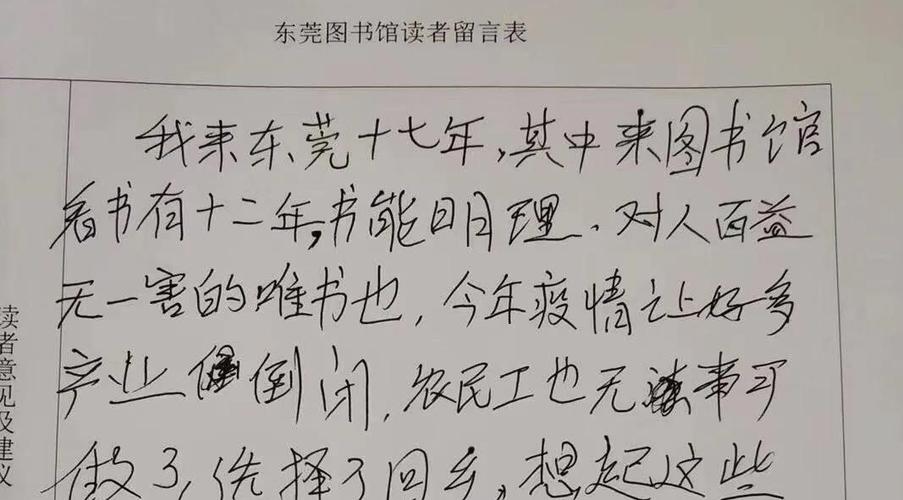 东莞图书馆读者留言表
我来东莞十七年,其中来图书馆
看书有十二年,书能明理、对人百益
无一害的唯书也,今年疫情让好多
产业倒闭,农民工也无事可
做了,选择了回乡,想起这些
读者意见及建议